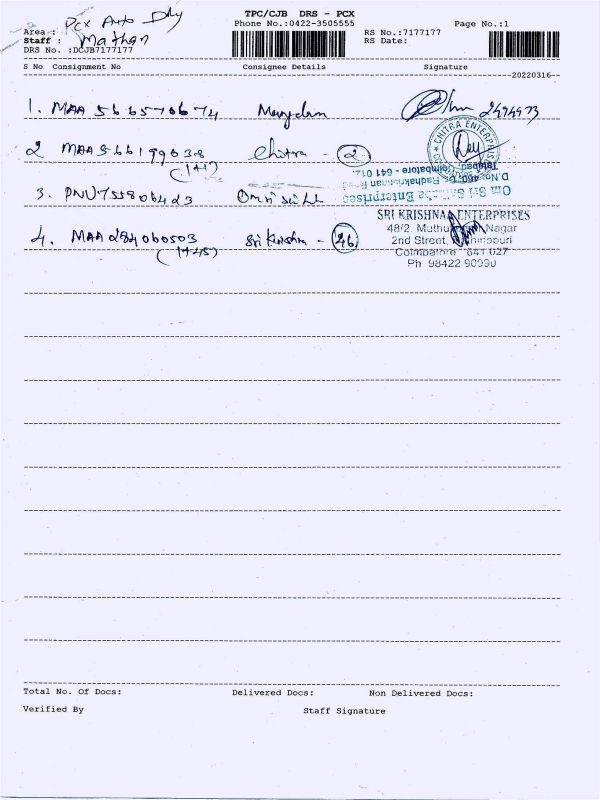 TPC/CJB DRS - PCX
Phone No.:0422-3505555
Page No.:1
Area : Pcx Auto Dly
Staff : Mathan
DRS No. :DCJB7177177
RS No.:7177177
RS Date:
S No Consignment No Consignee Details Signature
20220316
1. MAA 566570674
2 MAA 566199038 Chitra - 2
(1+1)
CHITRA ENTERPRISES
3. PNU755806423
Om Sri Enterprises
D.No. 460, Dr. Radhakrishnan Road
Tatabad, Coimbatore - 641 012.
4. MAA 284060503 Sri Krishna - 46
(1+45)
SRI KRISHNAA ENTERPRISES
48/2, Muthu Nagar
2nd Street,
Coimbatore - 641 027
Ph 98422 90090
Total No. Of Docs: Delivered Docs: Non Delivered Docs:
Verified By Staff Signature